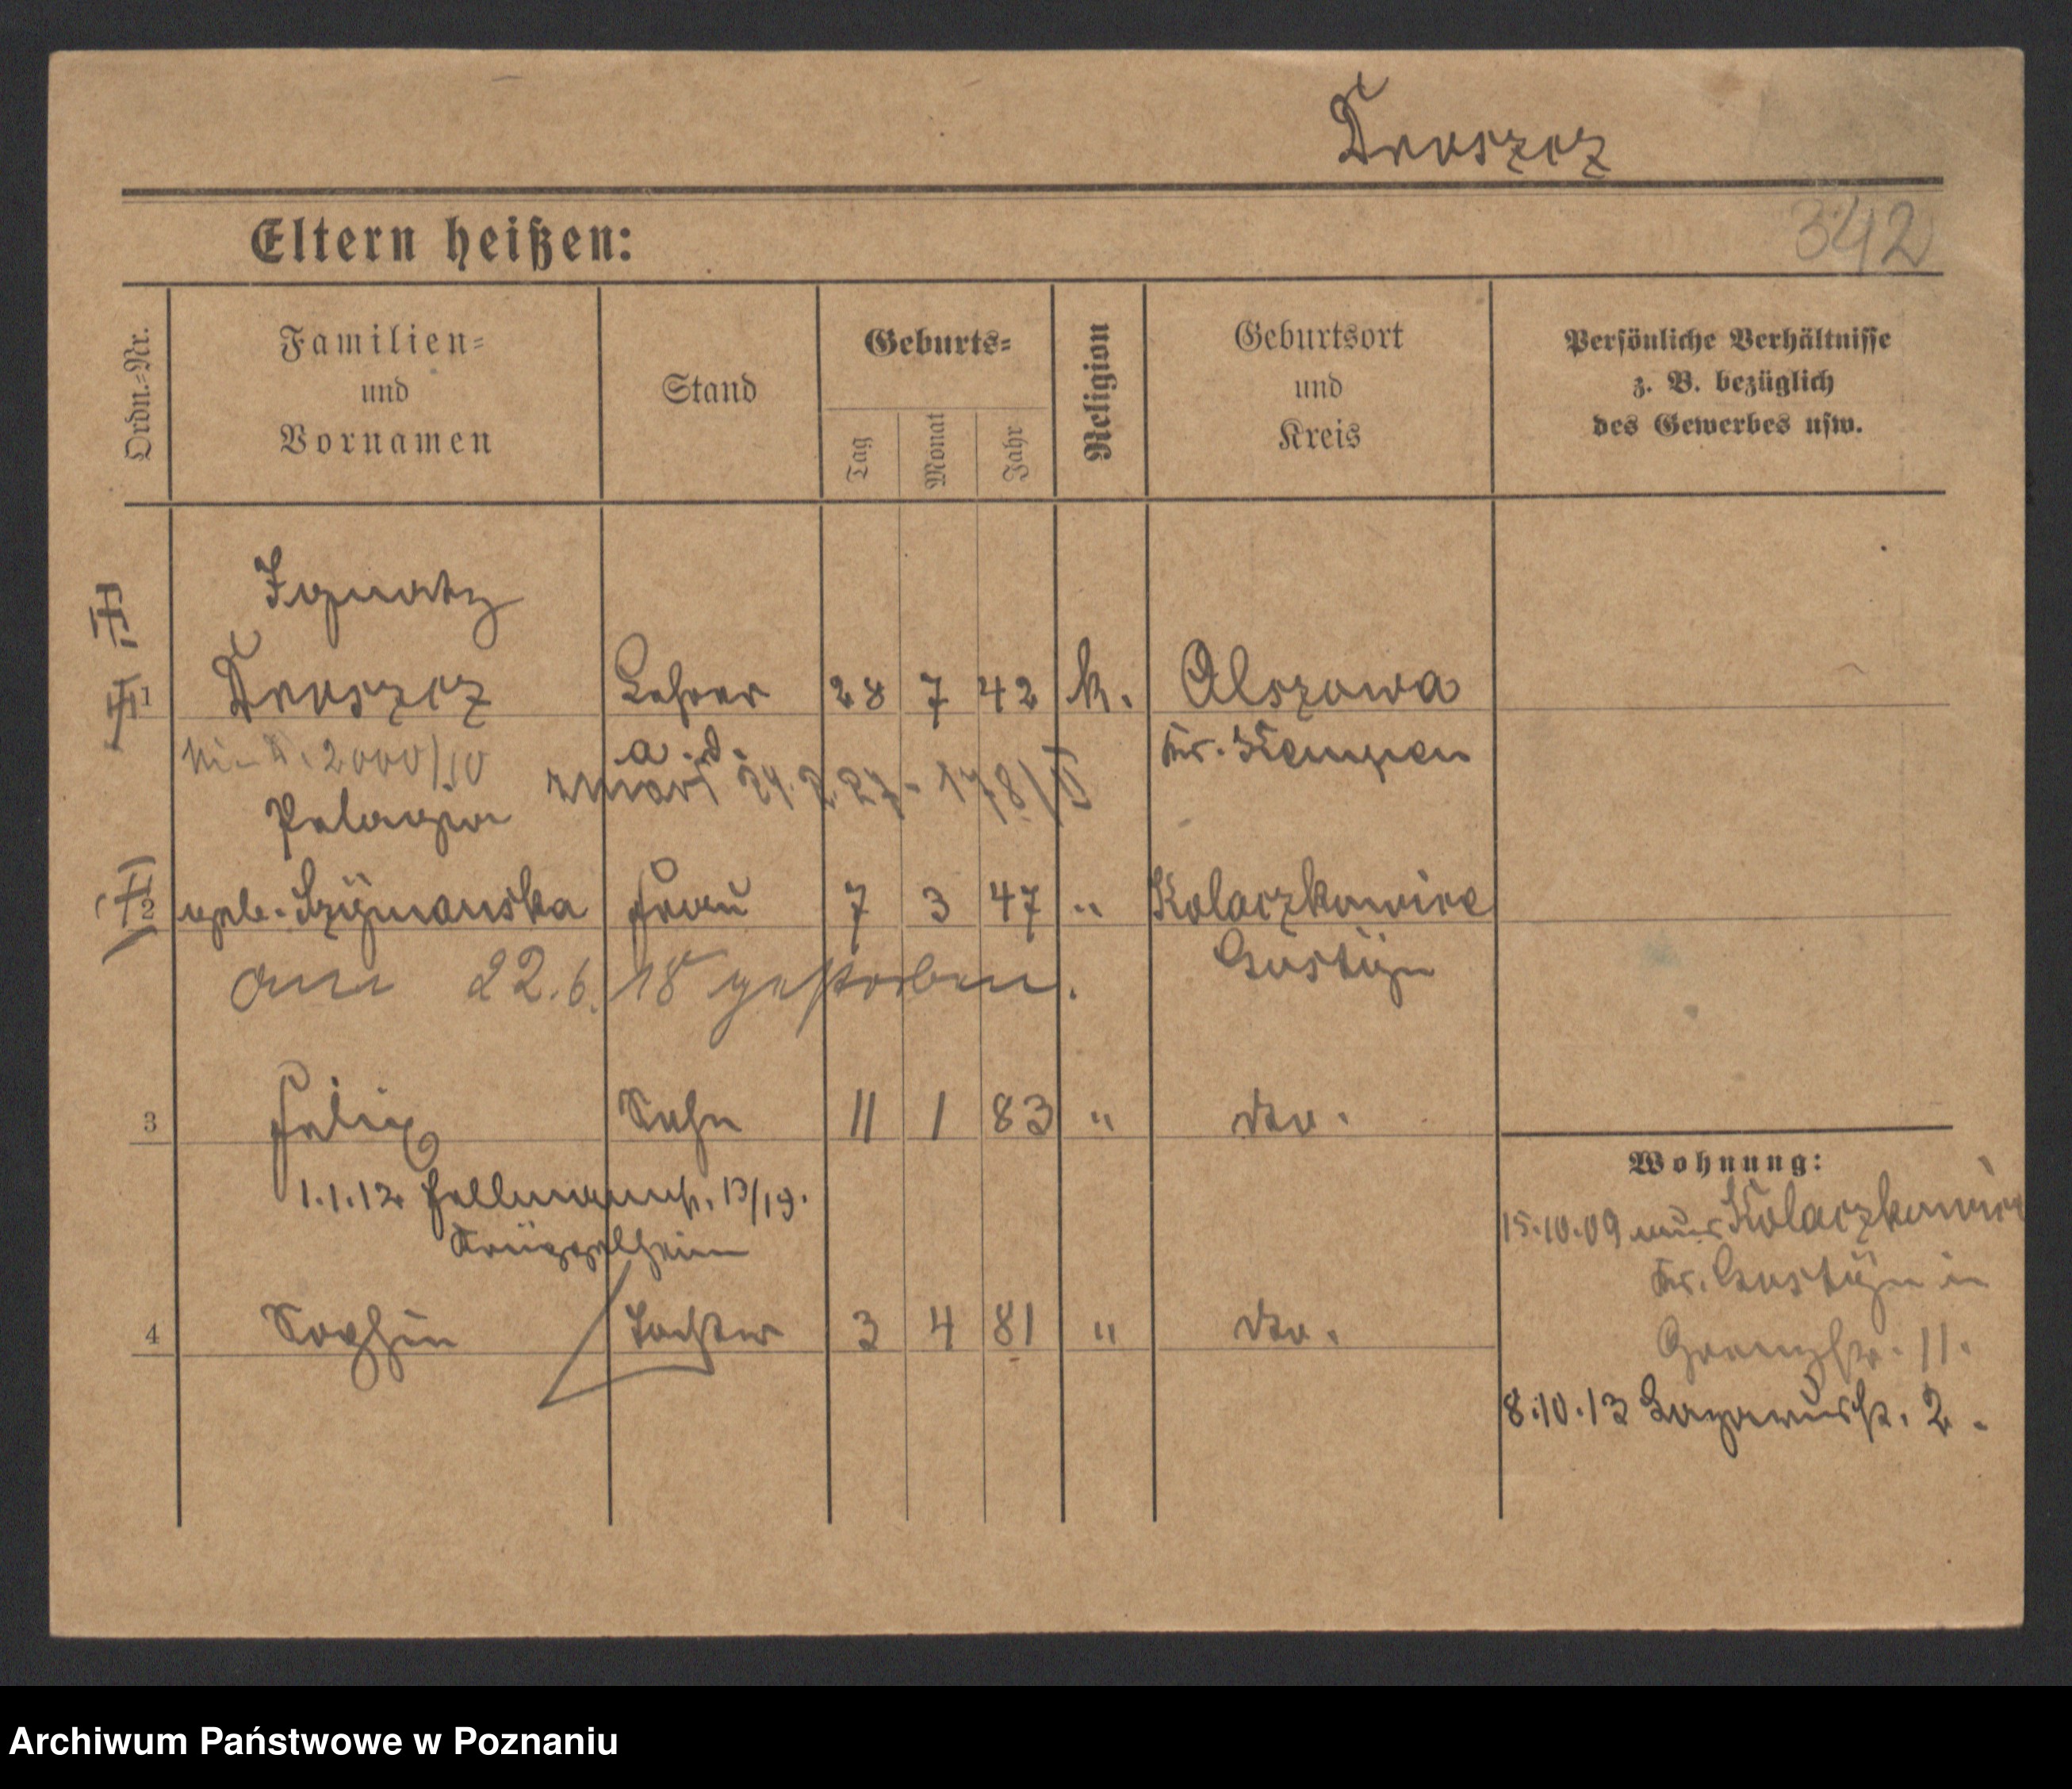 Droszcz
342
Eltern heißen:
Ordn.=Nr.
Familien=
und
Vornamen
Stand
Geburts=
Tag
Monat
Jahr
Religion
Geburtsort
und
Kreis
Persönliche Verhältnisse
z. B. bezüglich
des Gewerbes usw.
Ignatz
1 Droszcz Lehrer 28 7 42 k. Olszowa
2000/10 a. d. Kr. Kempen
zmarł 24.2.27 - 178/II
Pelagia
2 geb. Szymanska Frau 7 3 47 " Kolaczkowice
am 22.6.18 gestorben. Gostyn
3 Felix Sohn 11 1 83 " do.
1.1.12 Hellmannstr. 13/19.
Krüppelheim
4 Sophie Tochter 3 4 81 " do.
Wohnung:
15.10.09 aus Kolaczkowice
Kr. Gostyn in
Grenzstr. 11.
8.10.13 Lazarusstr. 2.
Archiwum Państwowe w Poznaniu